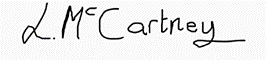 L. McCartney